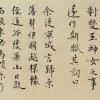 對楚王神女之事
遂作斯賦其詞曰
余從京域言歸東
藩背伊闕越轘轅
經通谷陵景山日